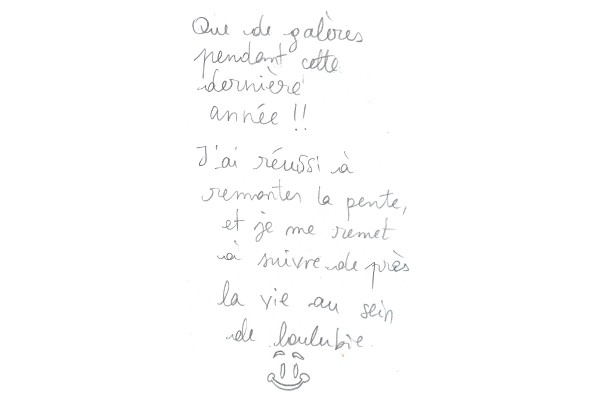 Que de galères
pendant cette
dernière
année !!
J'ai réussi à
remonter la pente,
et je me remet
à suivre de près
la vie au sein
de loulubie